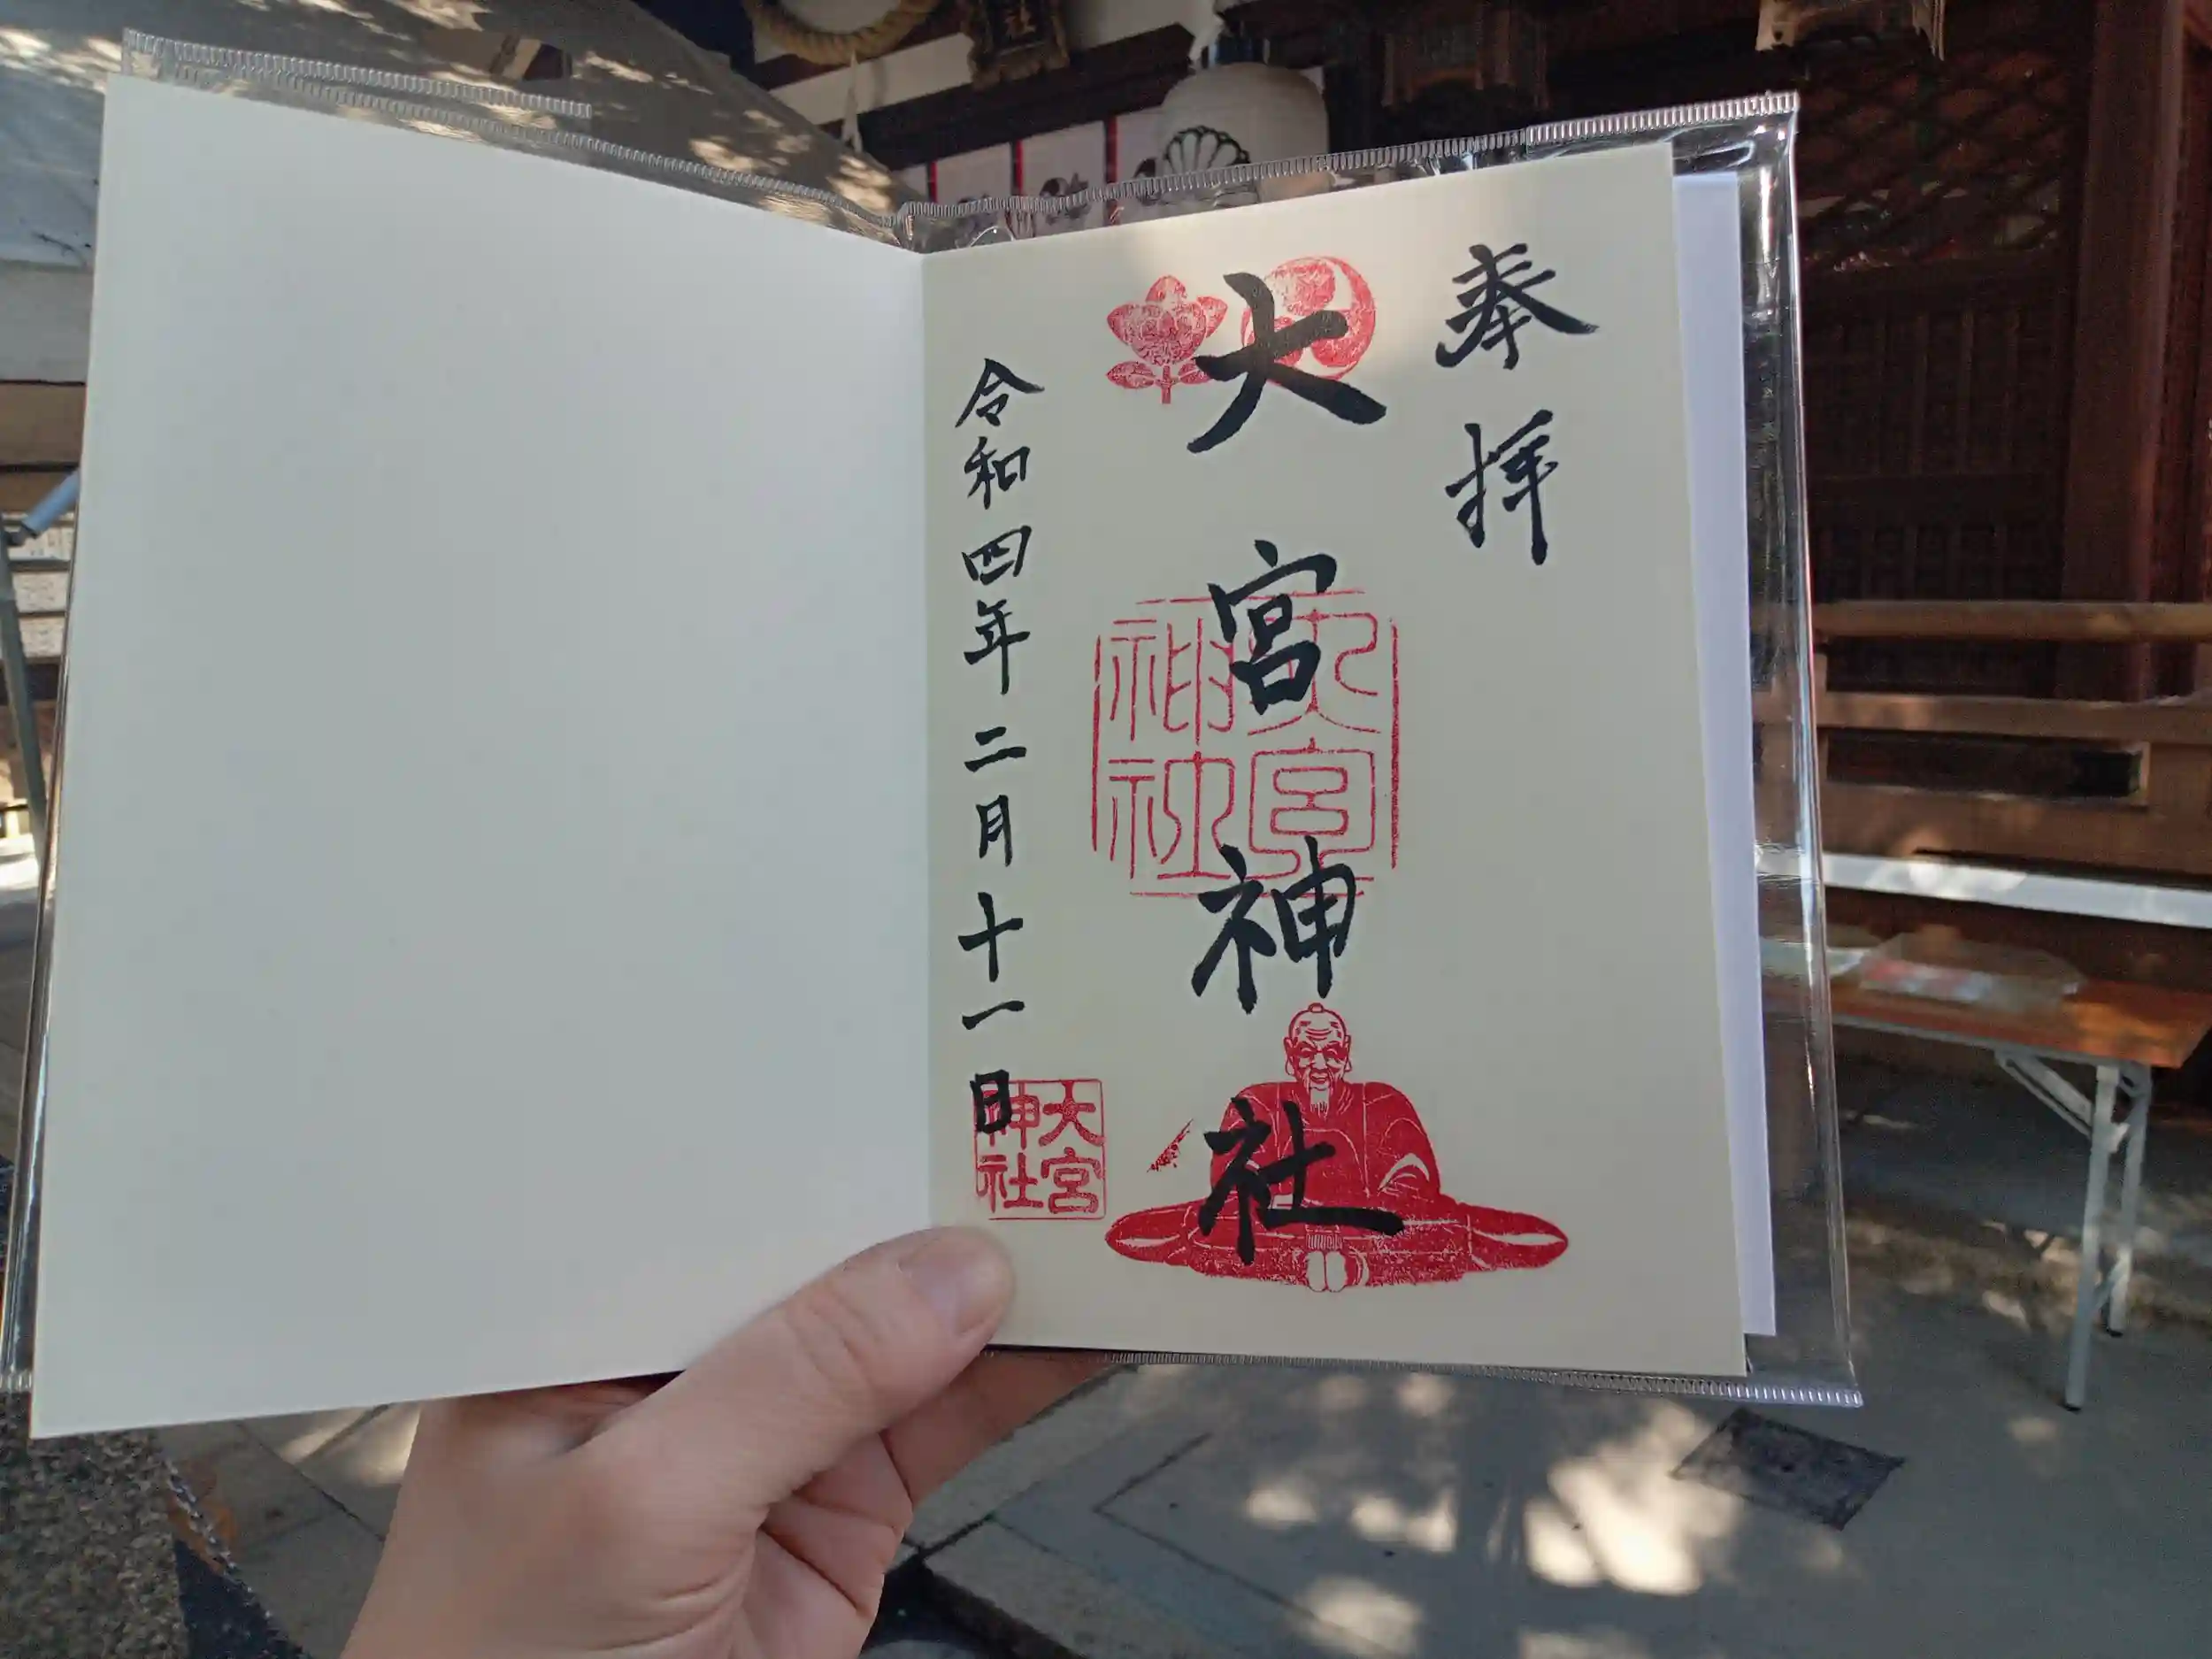 奉拝
大宮神社
令和四年二月十一日
大宮神社
大宮神社
社